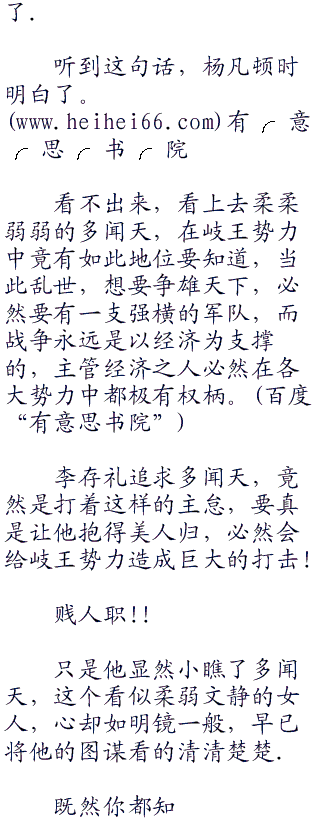 了.
听到这句话，杨凡顿时
明白了。
(www.heihei66.com)有╭意
╭思╭书╭院
看不出来，看上去柔柔
弱弱的多闻天，在岐王势力
中竟有如此地位要知道，当
此乱世，想要争雄天下，必
然要有一支强横的军队，而
战争永远是以经济为支撑
的，主管经济之人必然在各
大势力中都极有权柄。(百度
“有意思书院”)
李存礼追求多闻天，竟
然是打着这样的主怠，要真
是让他抱得美人归，必然会
给岐王势力造成巨大的打击!
贱人职!!
只是他显然小瞧了多闻
天，这个看似柔弱文静的女
人，心却如明镜一般，早已
将他的图谋看的清清楚楚.
既然你都知